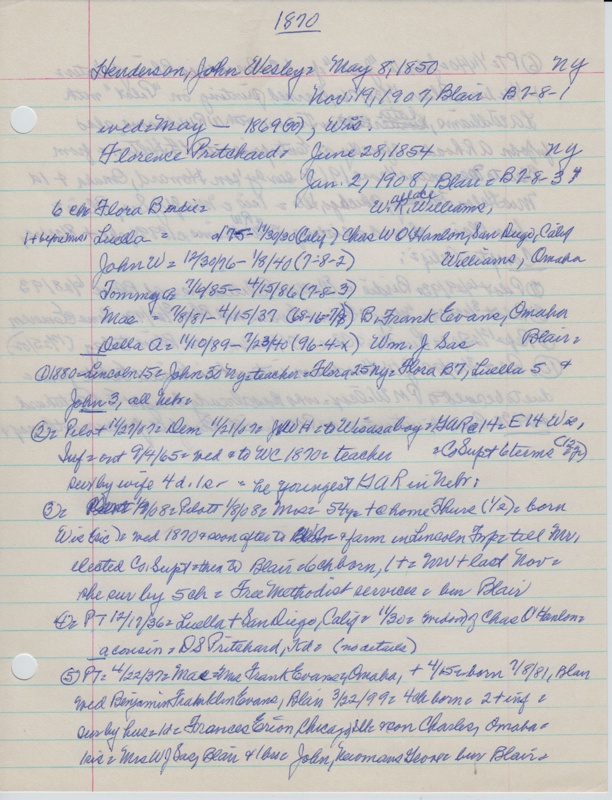 1870
Henderson, John Wesley = May 8, 1850 NY
Nov. 19, 1907, Blair B7-8-1
wed = May — 1869(70), Wis.
Florence Pritchard = June 28, 1854 NY
Jan. 2, 1908, Blair = B7-8-3
6 ch = Flora Birdie = W. R. Williams,
Luella = d 11/30/30 (Calif) Chas W O'Hanlon, San Diego, Calif
John W = 12/30/76 - 1/8/40 (7-8-2) Williams, Omaha
Tommy G = 7/6/85 - 4/15/86 (7-8-3)
Mae = 7/8/81 - 4/15/37 B. Frank Evans, Omaha
Della A = 1/10/89 - 7/23/40 (96-4-x) Wm. J. Sas Blair =
① 1880 = Lincoln 15 = John 30 NY = teacher = Flora 25 NY = Flora B 7, Luella 5 +
John 3, all Nebr =
② = Pilot 11/27/07 = Dem 11/21/07 = JWH = to Wis as a boy = GAR @ 14 = E 14 Wis,
Inf = out 9/4/65 = wed = to WC 1870 = teacher = Co Supt 6 terms (12 yr)
sur by wife 4 d. 1 s. = he youngest GAR in Nebr =
③ = 1/9/08 = Pilot 1/8/08 = Mrs = 54 yr + @ home Thurs (1/2) = born
Wis (sic) = wed 1870 = soon after to = farm in Lincoln Twp = till Mr.
elected Co. Supt = then to Blair = 6 ch born, 1 + = Mr + last Nov =
she sur by 5 ch = Free Methodist services = bur Blair
④ = PT 12/17/36 = Luella + San Diego, Calif = 11/30 = widow of Chas O'Hanlon =
a cousin = DS Pritchard, Kd = (no details)
⑤ PT = 4/22/37 = Mae = Mrs Frank Evans = Omaha, + 4/15 = born 7/8/81, Blair
wed Benjamin Franklin Evans, Blair 3/22/99 = 4 ch born = 2 + inf =
sur by hus = 1 d = Frances Erion, Chicago, Ill = son Charles, Omaha =
1 sis = Mrs W J Sas, Blair + 1 bro = John, Newmans Grove = bur Blair =